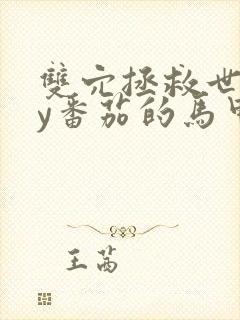 雙穴拯救世
y番茄的馬甲
王茜